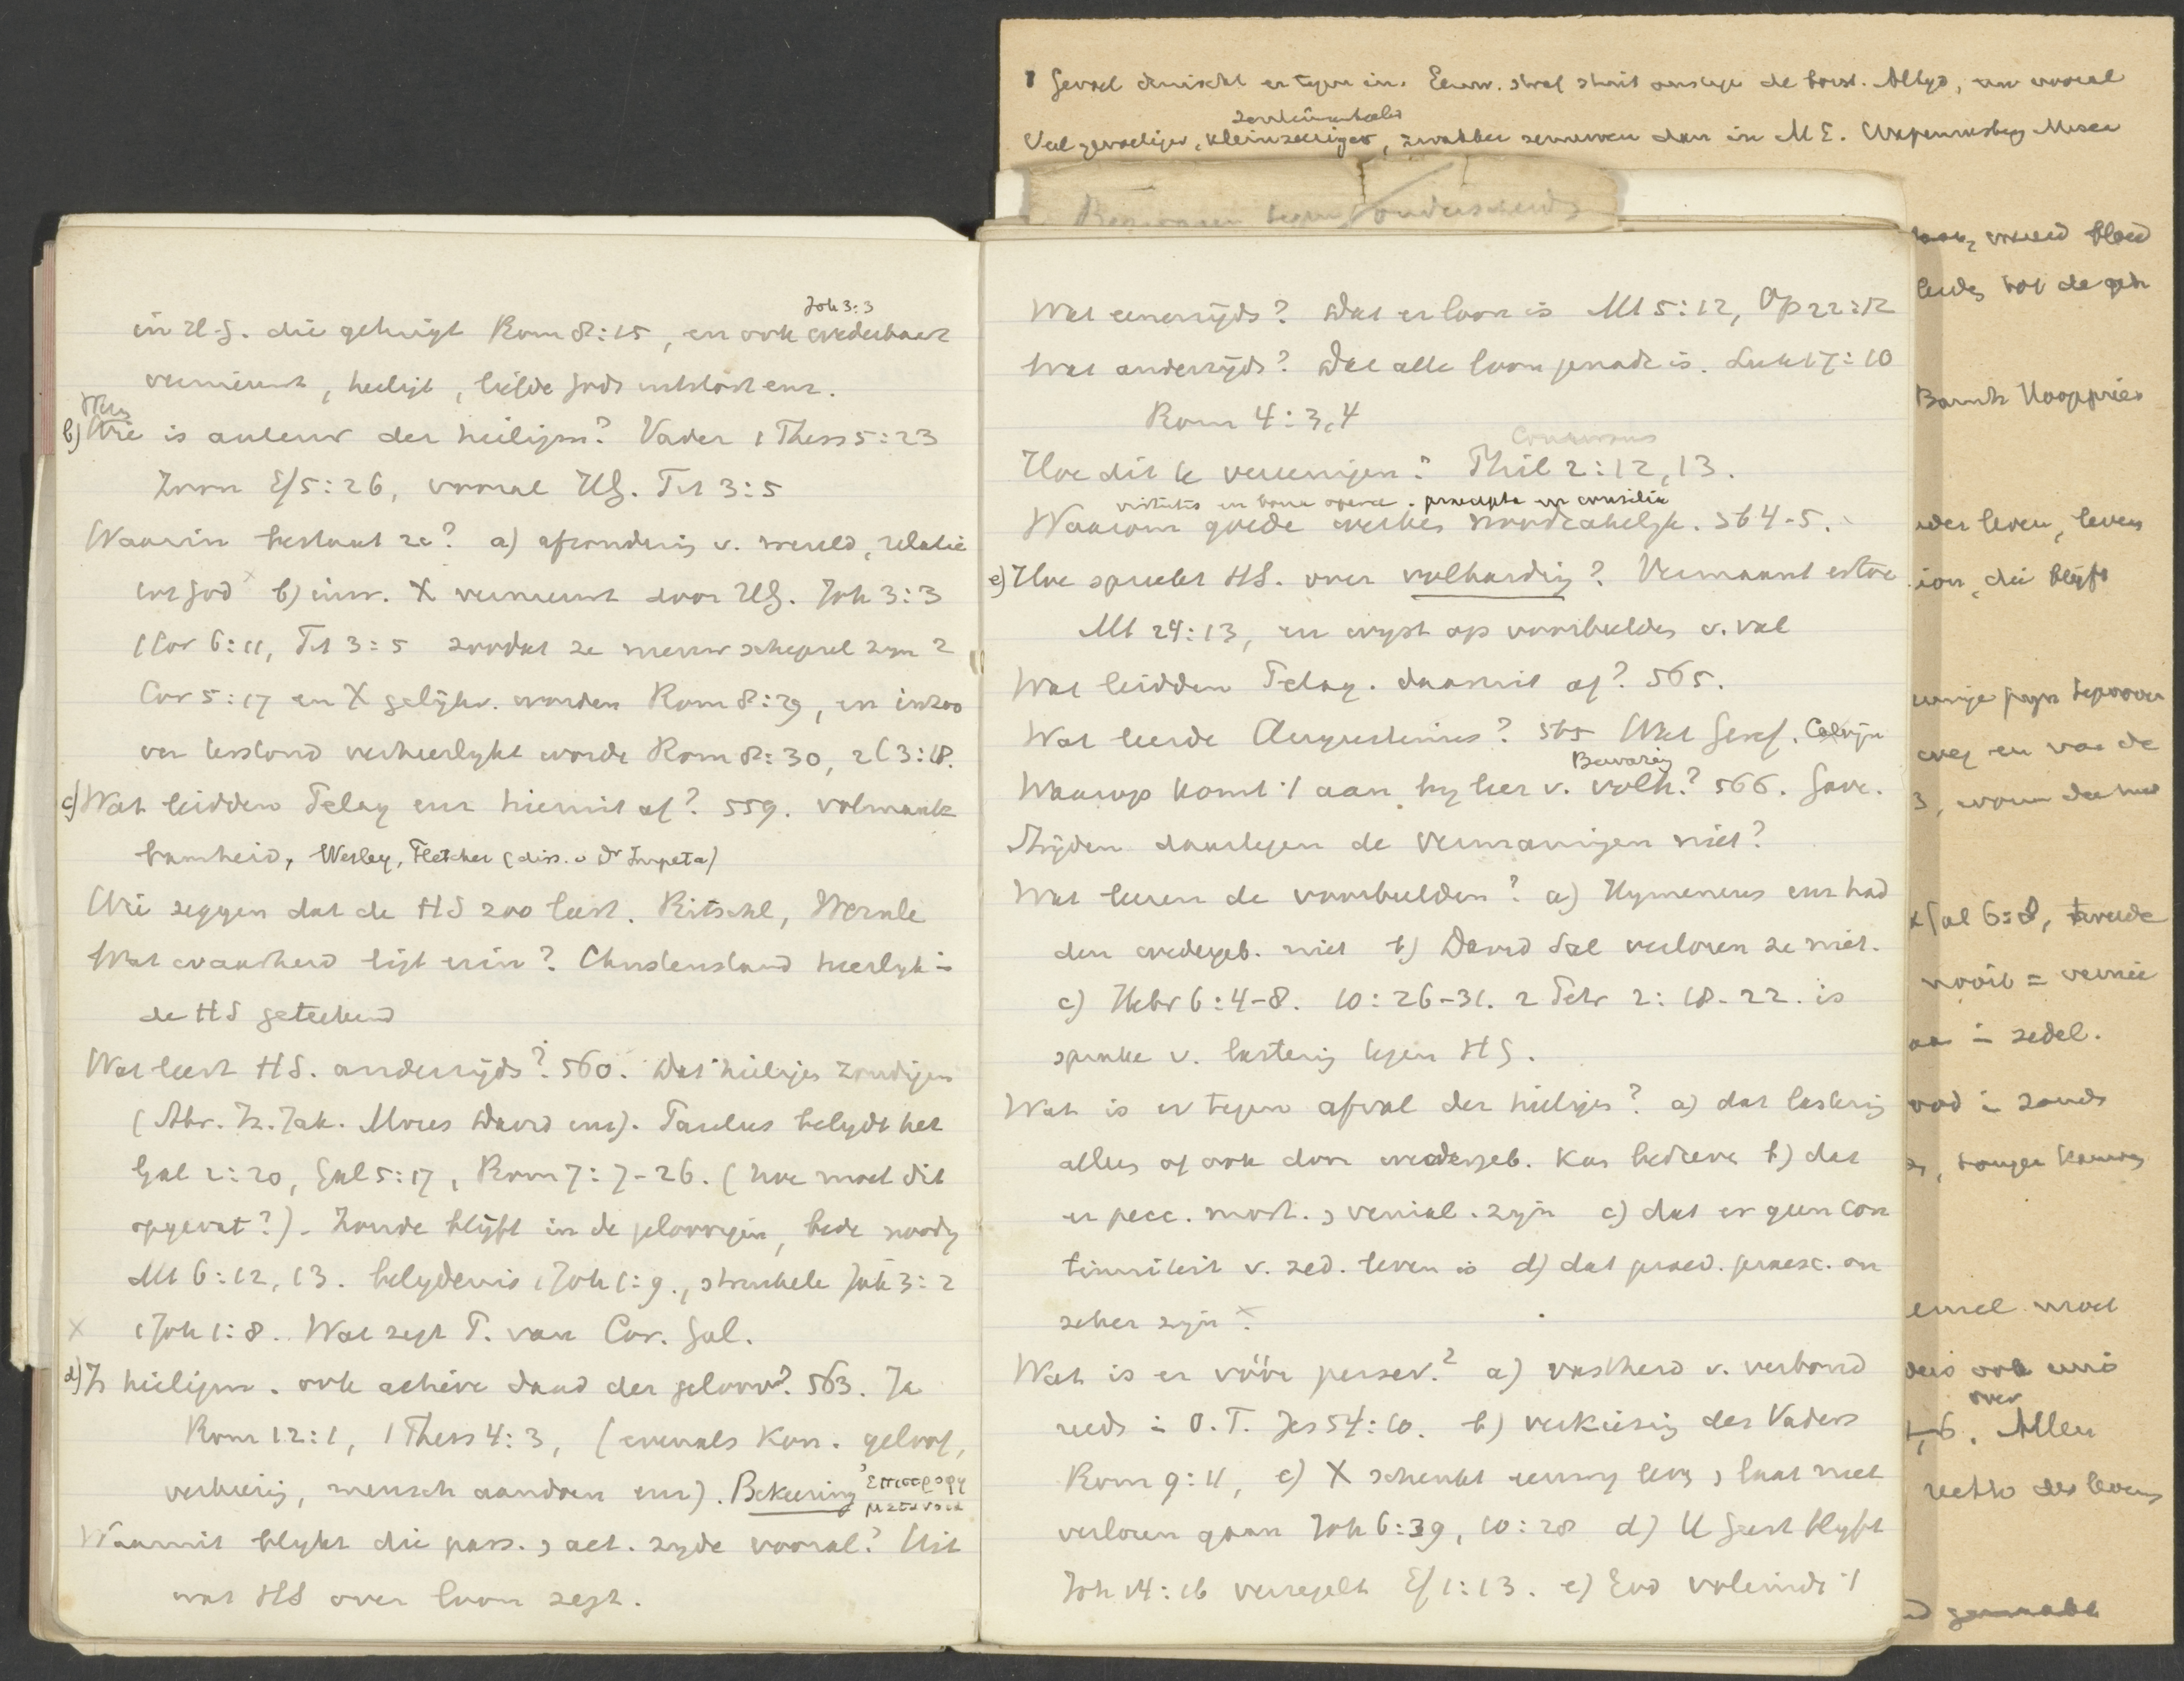 Gevoel druischt er tegen in. Eeuw. straf stuit ons tegen de borst. Altyd, nu vooral
sentimenteeler
Veel gevoeliger, kleinzeeriger, zwakker zenuwen dan in M E.
Joh 3:3
in H.G. die getuigt Rom 8:15, en ook wederbaart
vernieuwt, heiligt, liefde Gods uitstort enz.
b) Wie is auteur der heiligm? Vader 1 Thess 5:23
Zoon Ef 5:26, vooral HG. Tit 3:5
Waarin bestaat ze? a) afzondering v. wereld, relatie
tot God b) inw. X vernieuwt door HG. Joh 3:3
1 Cor 6:11, Tit 3:5 zoodat ze nieuw schepsel zyn 2
Cor 5:17 en X gelijkv. worden Rom 8:29, en inzoo
ver verheerlykt worde Rom 8:30, 2 C 3:18.
c) Wat leidden Pelag enz hieruit af? 559. volmaak
baarheid, Wesley, Fletcher (diss. v Dr Impeta)
Wie zeggen dat de HS zoo leert. Ritschl, Wernle
Wat waarheid ligt erin? Christenstand heerlyk in
de HS geteekend
Wat leert HS. anderzijds? 560. Dat heiligen zondigen
(Abr. Iz. Jak. Mozes David enz). Paulus belydt het
Gal 2:20, Gal 5:17, Rom 7:7-26. (hoe moet dit
opgevat?). Zonde blijft in de geloovigen, bede noodig
Mt 6:12, 13. belydenis 1 Joh 1:9., struikele Jak 3:2
x 1 Joh 1:8. Wat zegt P. van Cor. Gal.
d) Is heiligm. ook actieve daad der geloov? 563. Ja
Rom 12:1, 1 Thess 4:3, (evenals Kon. geloof,
verkiezing, mensch aandoen enz). Bekeering
Waaruit blykt die pass. & act. zyde vooral? Uit
wat HS over loon zegt.
Wat eenerzijds? Dat er loon is Mt 5:12, Op 22:12
Wat anderzijds? Dat alle loon genade is. Luk 17:10
Rom 4:3,4
Concursus
Hoe dit te vereenigen? Phil 2:12, 13.
virtutes en bona opera. praecepta en consilia
Waarom goede werken noodzakelijk. 564-5.
e) Hoe spreekt HS. over volharding? Vermaant ertoe
Mt 24:13, en wyst op voorbeelden v. val
Wat leidden Pelag. daaruit af? 565.
Wat leerde Augustinus? 565 Wat Geref. Calvijn
Bewaring
Waarop komt 't aan by leer v. volh? 566. Gave.
Strijden daartegen de vermaningen niet?
Wat leeren de voorbeelden? a) Hymeneus enz had
den wedergeb. niet b) David Sal verloren ze niet.
c) Hebr 6:4-8. 10:26-31. 2 Petr 2:18-22. is
sprake v. lastering tegen HG.
Wat is er tegen afval der heiligen? a) dat lastering
alles of ook door wedergeb. kan bedreve b) dat
er pecc. mort. & venial. zijn c) dat er geen con
tinuiteit v. zed. leven is d) dat praed. praesc. on
zeker zijn
Wat is er vóór persev.? a) vastheid v. verbond
reeds in O.T. Jes 54:10. b) verkiezing des Vaders
Rom 9:11, c) X schenkt eeuwig leven & laat niet
verloren gaan Joh 6:39, 10:28 d) H Geest blyft
Joh 14:16 verzegelt Ef 1:13. e) God voleindt 't
leven, leven
ion, die blijft
Gal 6:8, tweede
nooit = vernie
in zedel.
ook
over
Allen